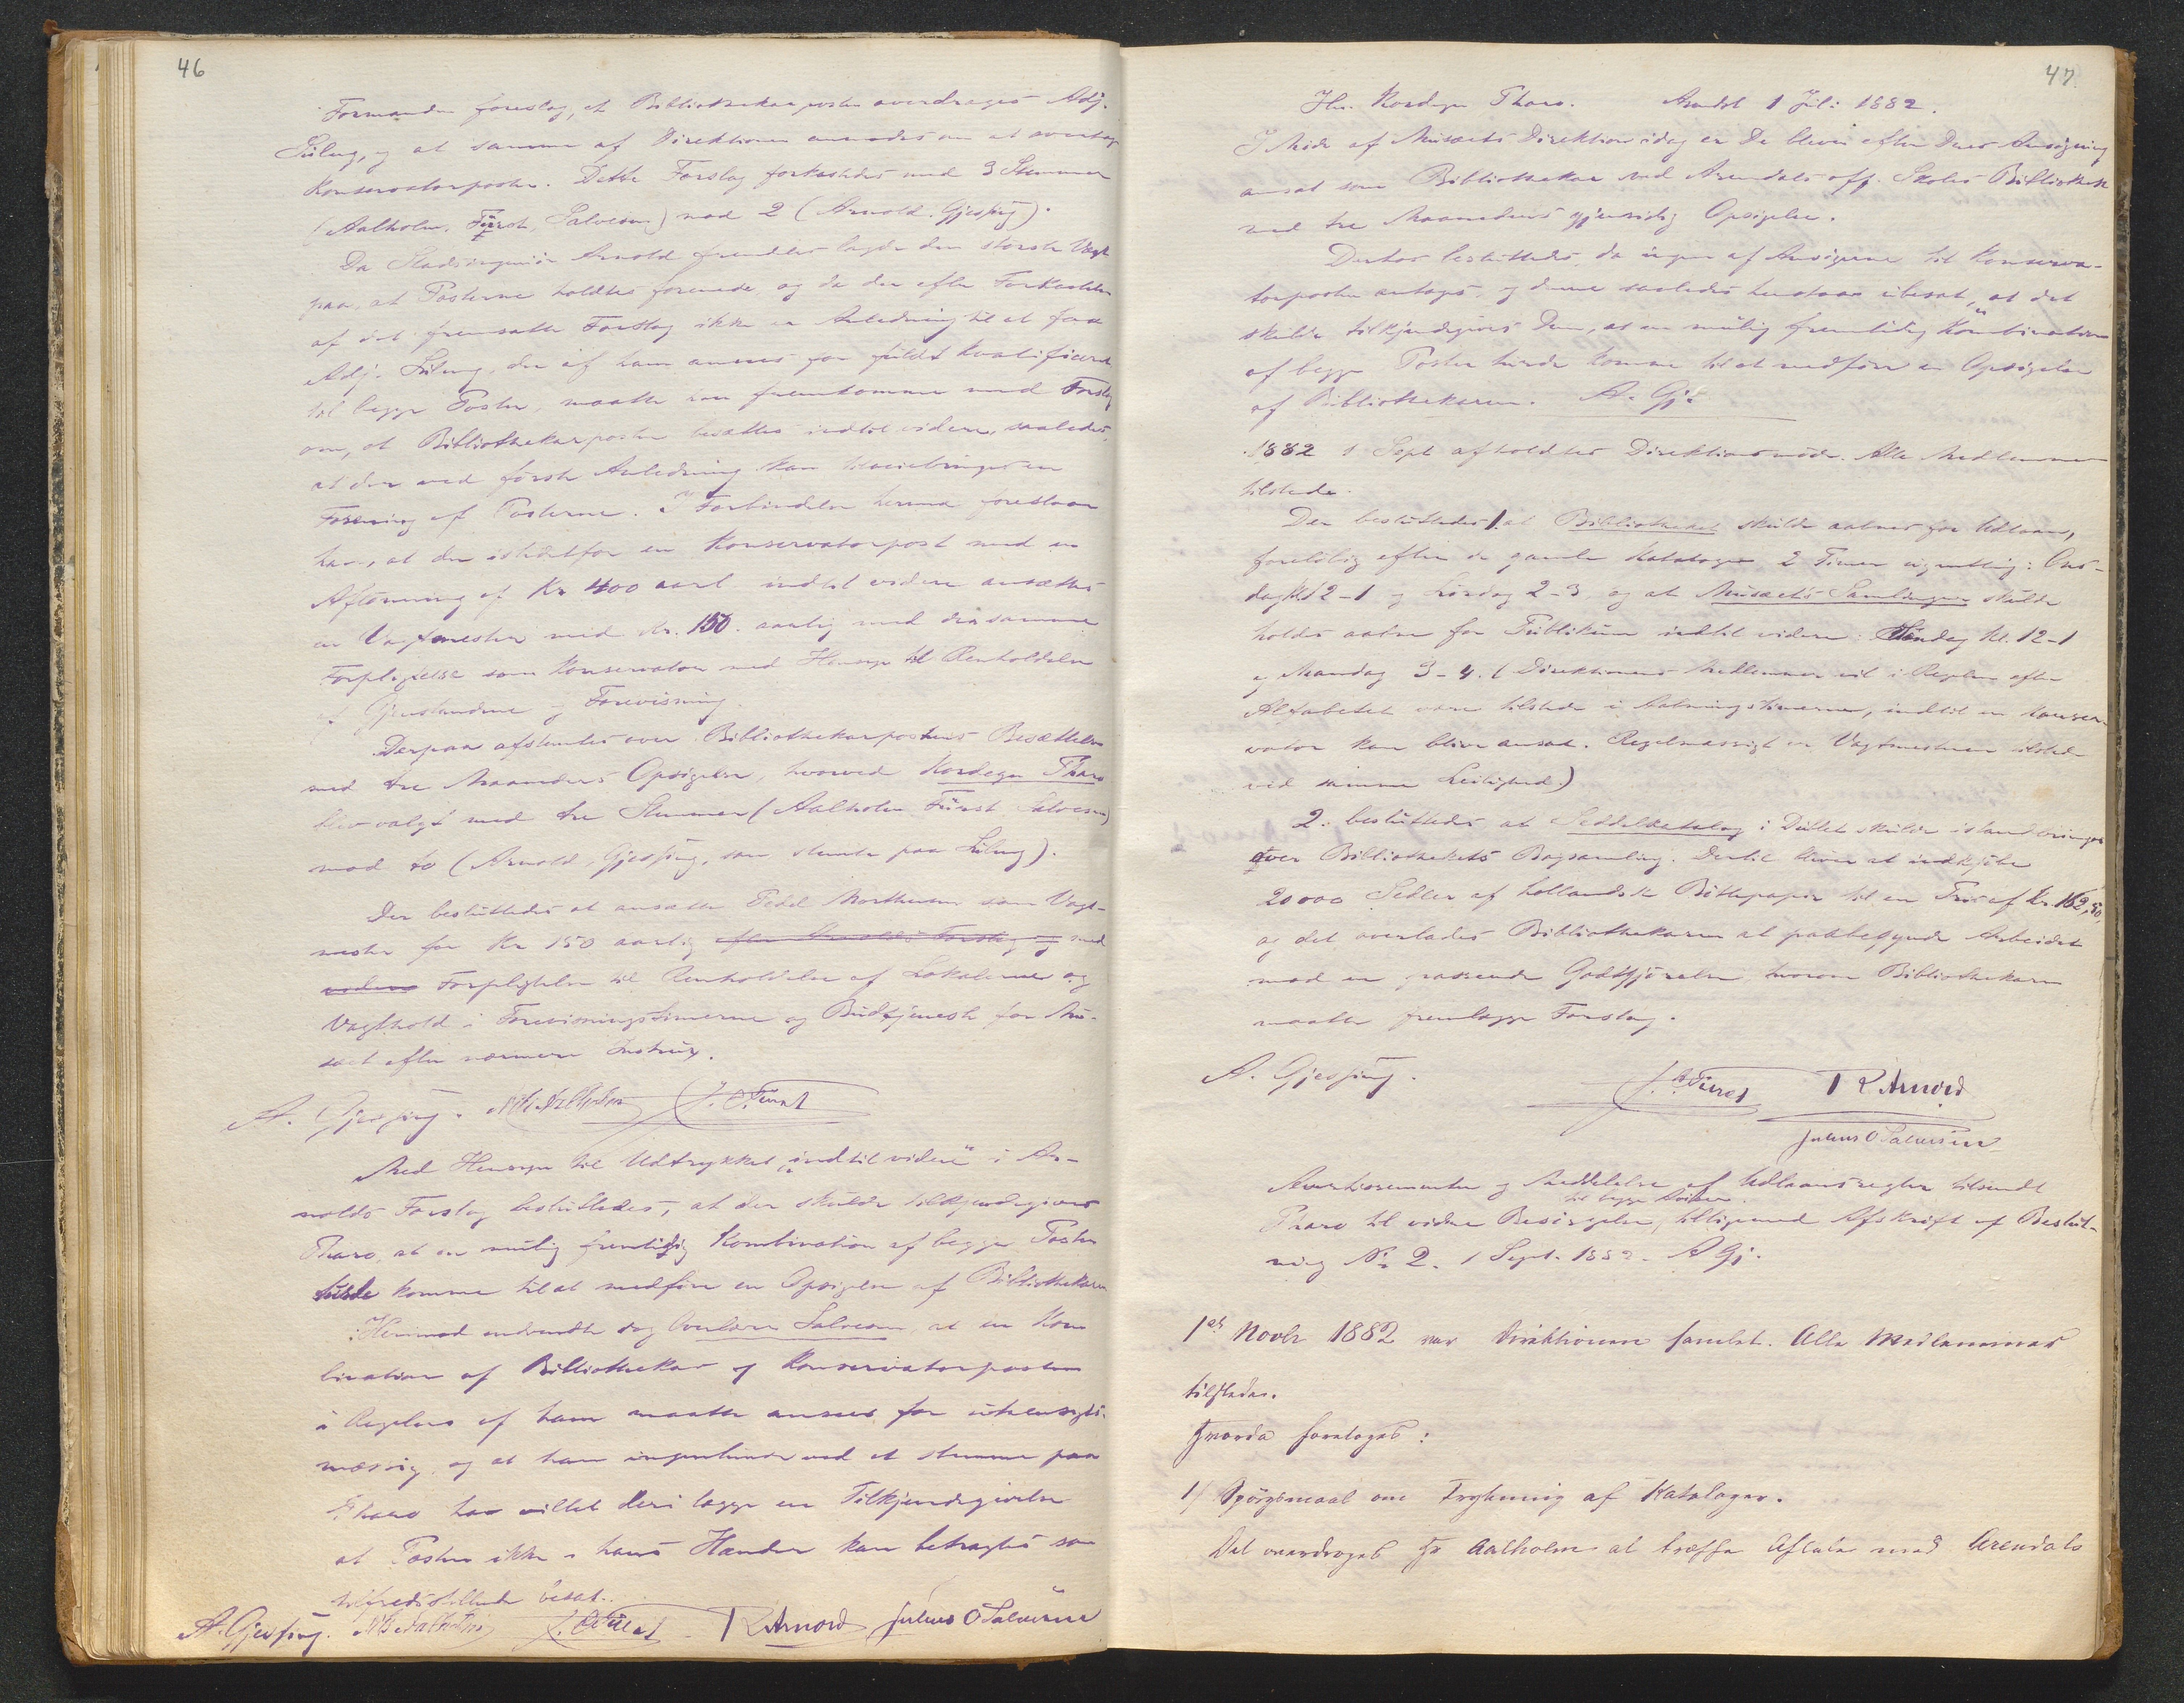 46
Formanden foreslog, at Bibliothekarposten overdroges Adj.
og at samme af Direktionen anmodes om at overtage
Konservatorposten. Dette Forslag forkastedes med 3 Stemmer
(Aalholm, Fürst, Salvesen) mod 2 (Arnold, Gjessing).
Da Stadsingeniör Arnold fremdeles lagde den störste Vægt
paa, at Posterne holdtes forenede og da der efter Forkastelsen
af det fremsatte Forslag ikke er Anledning til at faa
Adj. der af ham ansees for fuldt kvalificeret
til begge Poster, maatte han fremkomme med Forslag
om, at Bibliothekarposten besættes indtil videre, saaledes,
at der ved förste Anledning kan tilveiebringes en
Forening af Posterne. I Forbindelse hermed foreslaar
han, at der istedetfor en Konservatorpost med en
Aflönning af Kr 400 aarl. indtil videre ansættes
en Vagtmester med Kr. 150. aarlig med den samme
Forpligtelse som Konservator med Hensyn til Renholdelse
af Gjenstandene og Forevisning.
Derpaa afstemtes over Bibliothekarpostens Besættelse
med tre Maaneders Opsigelse, hvorved Kordegn Tharo
blev valgt med tre Stemmer (Aalholm Fürst Salvesen)
mod to (Arnold, Gjessing, som stemte paa
Der besluttedes at ansætte Pedel Morthensen som Vagt-
mester for Kr 150 aarlig efter Arnolds Forslag og med
videre Forpligtelse til Renholdelse af Lokalerne og
Vagthold i Forevisningstimerne og Budtjeneste for Mu-
sæet efter nærmere Instrux.
A. Gjessing. Nils Aalholm J. C. Fürst
Med Hensyn til Udtrykket "indtil videre" i Ar-
nolds Forslag besluttedes, at der skulde tilkjendegives
Tharo, at en mulig fremtidig Kombination af begge Poster
turde komme til at medföre en Opsigelse af Bibliothekaren
Herimod indvendte dog Overlærer Salvesen, at en Kom-
bination af Bibliothekar og Konservatorposten
i Regelen af ham maatte ansees for uhensigts-
mæssig, og at han ingenlunde ved at stemme paa
Tharo har villet deri lægge en Tilkjendegivelse
at Posten ikke i hans Hænder kan betragtes som
tilfredsstillende besat.
A. Gjessing. Nils Aalholm J. C. Fürst R Arnold Julius O Salvesen
47
Hr. Kordegn Tharo. Arendal 1 Juli 1882.
I Möde af Musæets Direktion idag er De bleven efter Deres Ansögning
ansat som Bibliothekar ved Arendals off. Skoles Bibliothek
med tre Maaneders gjensidig Opsigelse.
Derhos besluttedes, da ingen af Ansögerne til Konserva-
torposten antoges, og denne saaledes henstaar ubesat, at det
skulde tilkjendegives Dem, at en mulig fremtidig Kombination
af begge Poster turde komme til at medföre en Opsigelse
af Bibliothekaren. A. Gj.
1882 1 Sept afholdtes Direktionsmöde. Alle Medlemmer
tilstede.
Der besluttedes 1. at Bibliotheket skulde aabnes for Udlaan,
forelöbig efter de gamle Kataloger 2 Timer ugentlig: Ons-
dag Kl 12-1 og Lördag 2-3, og at Musæets Samlinger skulde
holdes aabne for Publikum indtil videre: Söndag kl. 12-1
og Mandag 3-4. (Direktionens Medlemmer vil i Reglen efter
Alfabetet være tilstede i Aabningstimerne, indtil en Konser-
vator kan blive ansat. Regelmæssigt er Vagtmesteren tilstede
ved samme Leilighed)
2. besluttedes at Seddelkatalog i Dublet skulde istandbringes
over Bibliothekets Bogsamling. Dertil bliver at indkjöbe
20000 Sedler af hollandsk Böttepapir til en Pris af Kr. 162,50
og det overlades Bibliothekaren at paabegynde Arbeidet
mod en passende Godtgjörelse, hvorom Bibliothekaren
maatte fremlægge Forslag.
A. Gjessing. J. C. Fürst R Arnold
Julius O Salvesen
Avertissementer og Meddelelse af Udlaansregler tilsendt
til begge Aviser
Tharo til videre Besörgelse, tilligemed Afskrift af Beslut-
ning No 2. 1 Sept. 1882. A Gj.
1ste Novbr 1882 var Direktionen samlet. Alle Medlemmer
tilstede.
Hvorda foretoges:
1) Spörgsmaal om Trykning af Kataloger.
Det overdroges Hr Aalholm at træffe Aftale med Arendals